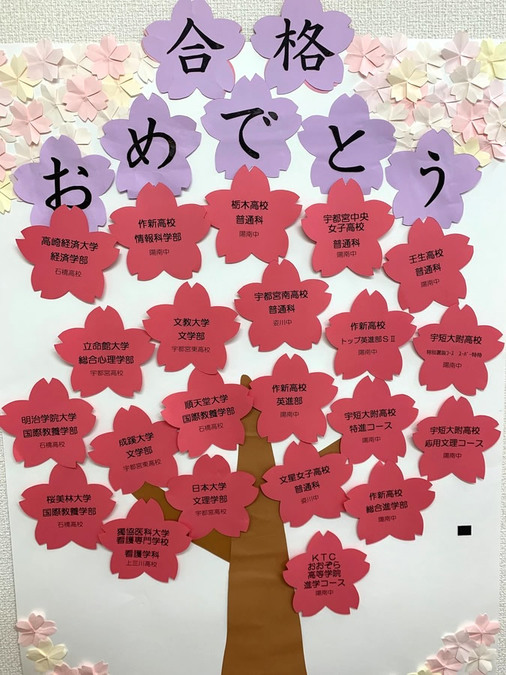 合格
おめでとう
高崎経済大学
経済学部
石橋高校
作新高校
情報科学部
陽南中
栃木高校
普通科
陽南中
宇都宮中央
女子高校
普通科
陽南中
壬生高校
普通科
陽南中
立命館大学
総合心理学部
宇都宮高校
文教大学
文学部
宇都宮東高校
宇都宮南高校
普通科
姿川中
作新高校
トップ英進部SⅡ
陽南中
宇短大附高校
陽南中
明治学院大学
国際教養学部
石橋高校
成蹊大学
文学部
宇都宮東高校
順天堂大学
国際教養学部
石橋高校
作新高校
英進部
陽南中
宇短大附高校
特進コース
陽南中
宇短大附高校
応用文理コース
陽南中
桜美林大学
国際教養学部
石橋高校
獨協医科大学
看護専門学校
看護学科
上三川高校
日本大学
文理学部
宇都宮高校
文星女子高校
普通科
姿川中
作新高校
総合進学部
陽南中
KTC
おおぞら
高等学院
進学コース
陽南中